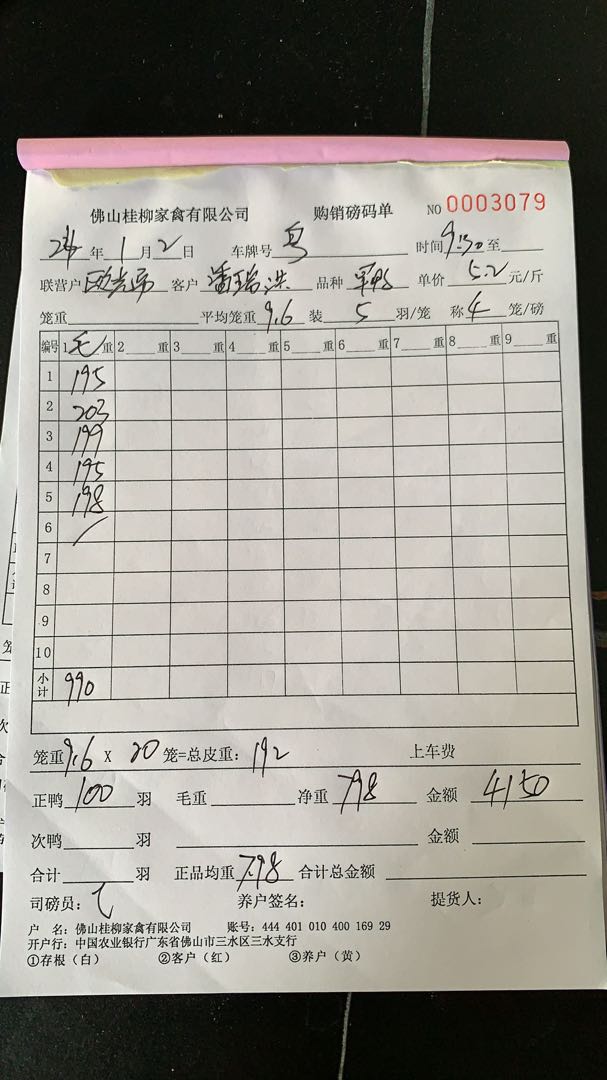 佛山桂柳家禽有限公司 购销磅码单 NO 0003079
24 年 1 月 2 日 车牌号 时间 9:30 至
联营户 客户 潘瑞洪 品种 单价 5.2 元/斤
笼重 平均笼重 9.6 装 5 羽/笼 称 4 笼/磅
编号 1 毛 重 2 重 3 重 4 重 5 重 6 重 7 重 8 重 9 重
1 195
2 203
3 199
4 195
5 198
6 /
7
8
9
10
小计 990
笼重 9.6 X 20 笼=总皮重: 192 上车费
正鸭 100 羽 毛重 净重 798 金额 4150
次鸭 羽 金额
合计 羽 正品均重 7.98 合计总金额
司磅员: 养户签名: 提货人:
户 名: 佛山桂柳家禽有限公司 账号: 444 401 010 400 169 29
开户行: 中国农业银行广东省佛山市三水区三水支行
①存根（白） ②客户（红） ③养户（黄）